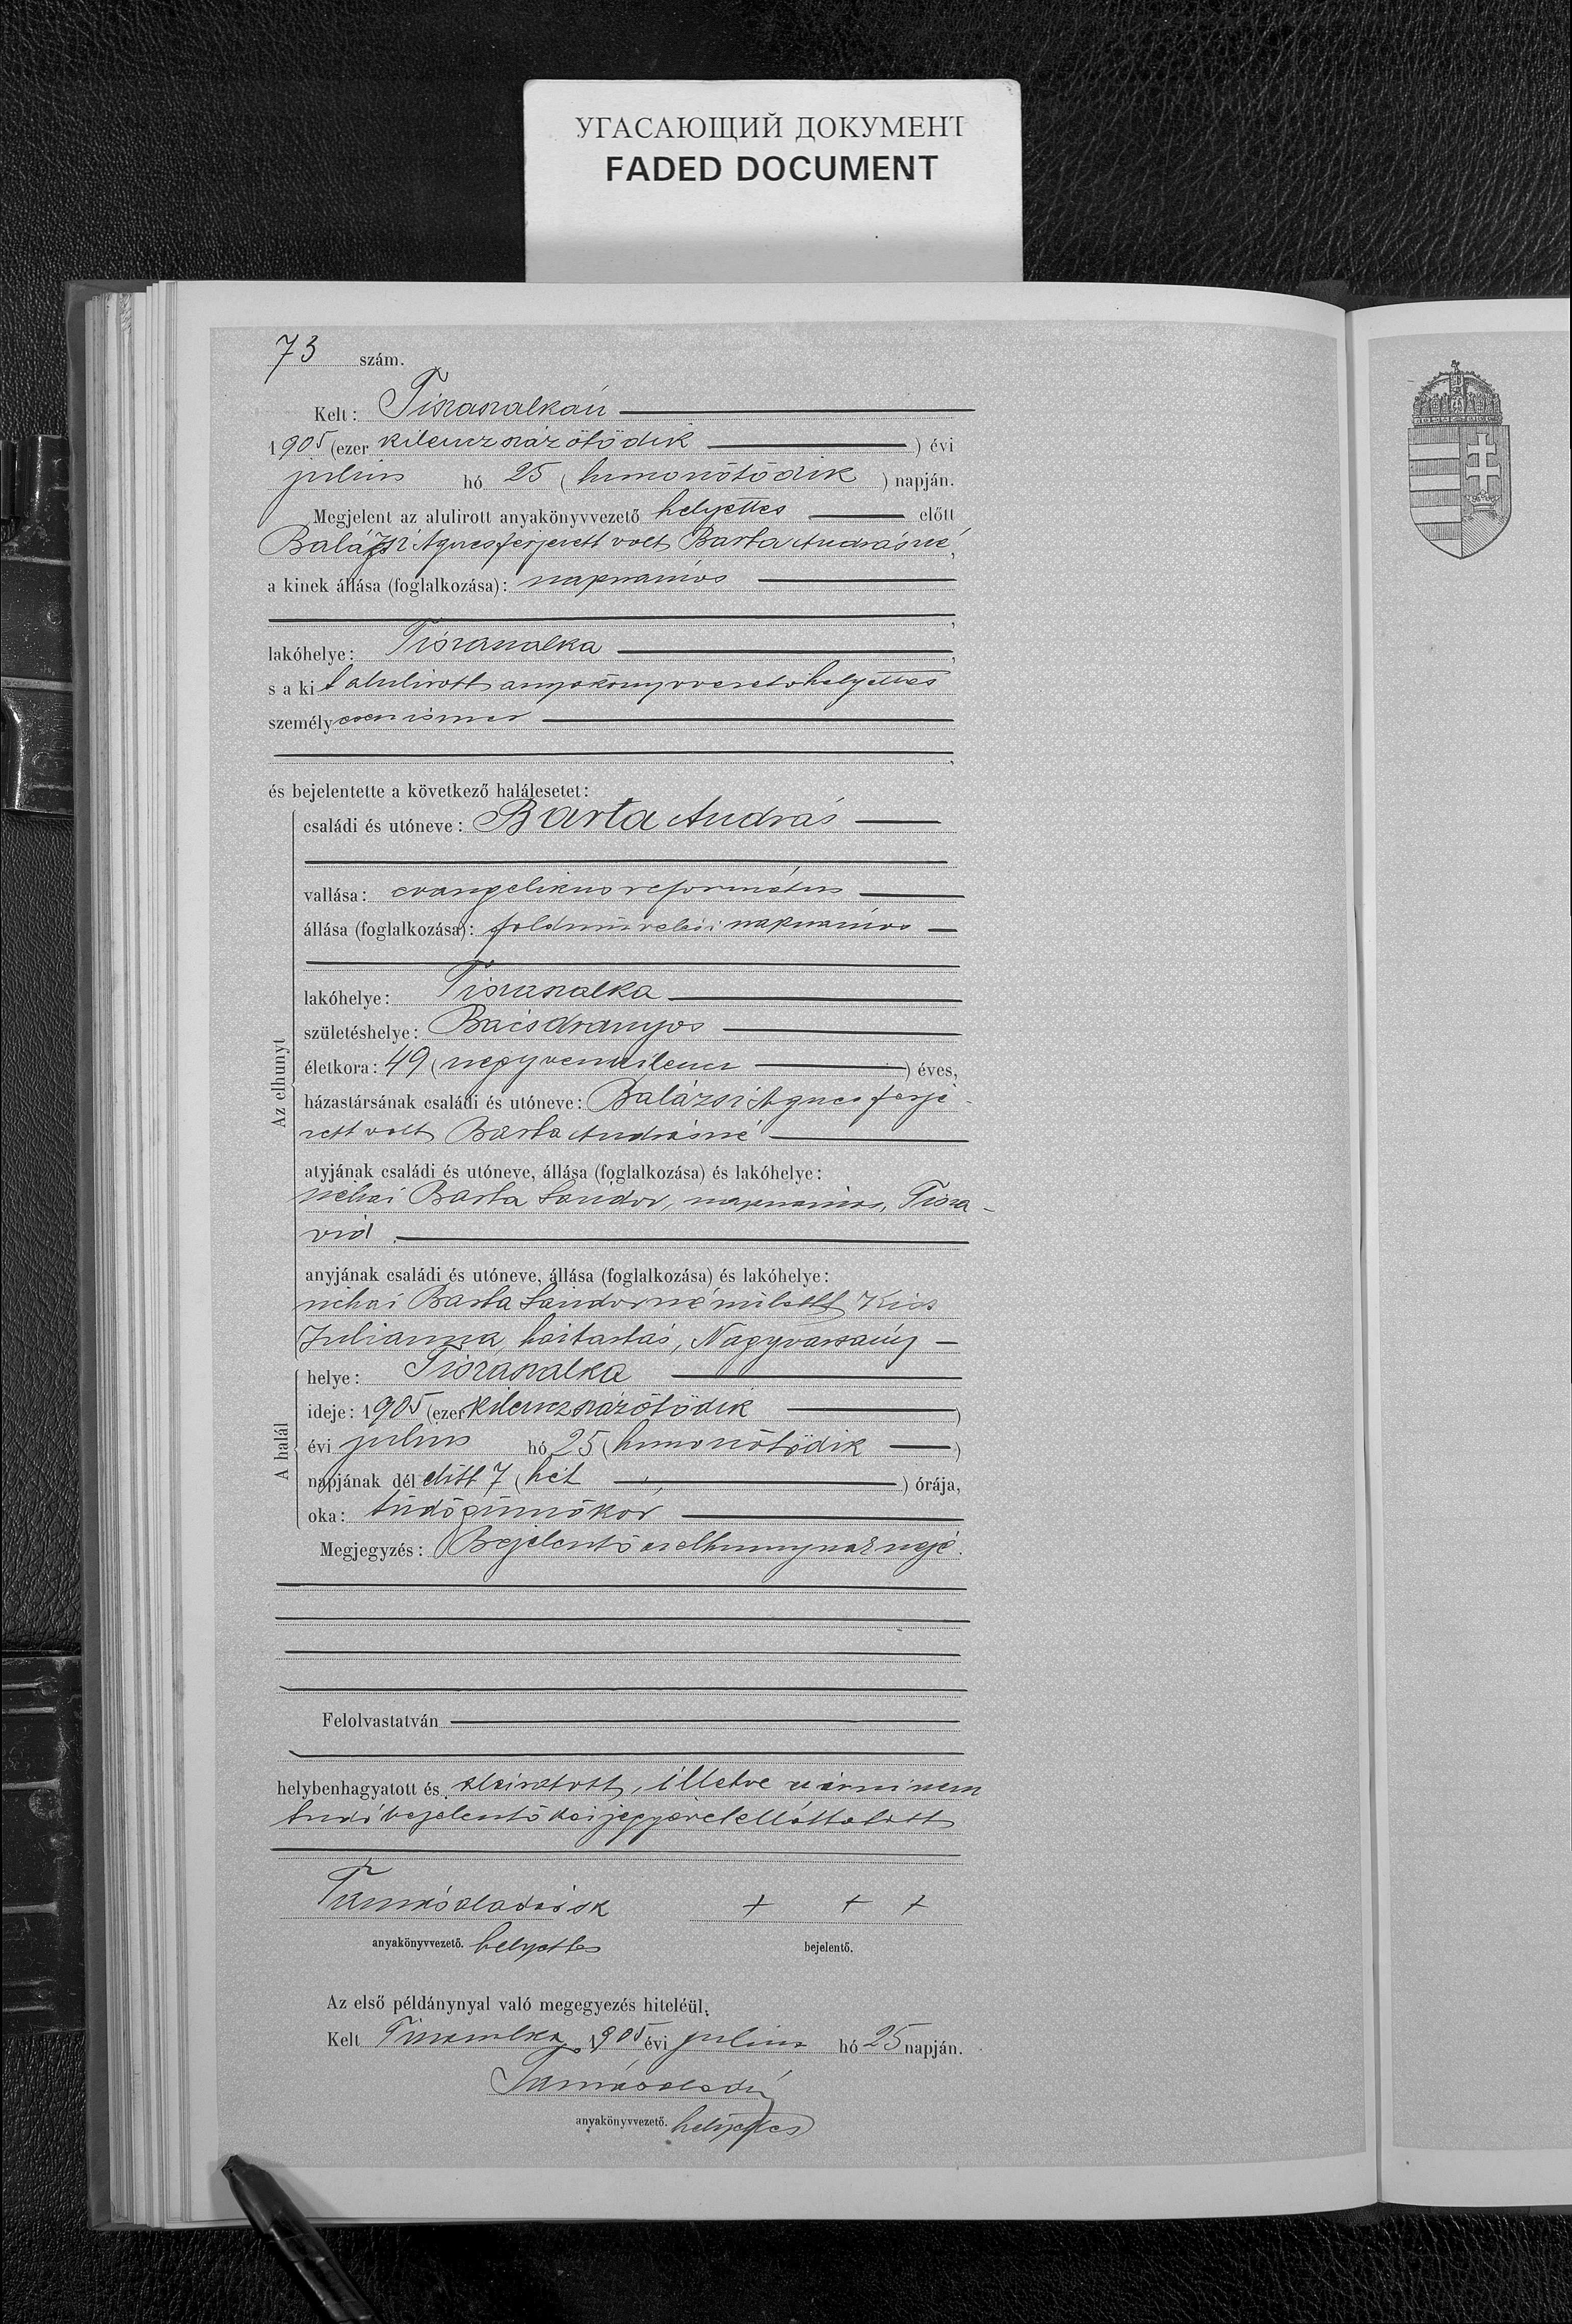 УГАСАЮЩИЙ ДОКУМЕНТ
FADED DOCUMENT
73 szám.
Kelt: Tiszaszalkán
1905 (ezer kilenczszázötödik ) évi
julius hó 25 ( huszonötödik ) napján.
Megjelent az alulirott anyakönyvvezető helyettes előtt
Balázsi Ágnes férjezett volt Barta Andrásné,
a kinek állása (foglalkozása): napszámos
,
lakóhelye: Tiszaszalka ,
s a kit alulirott anyakönyvvezető helyettes
személyesen ismer
,
és bejelentette a következő halálesetet:
Az elhunyt
családi és utóneve: Barta András
vallása: evangelikus református
állása (foglalkozása): földmüvelési napszámos
lakóhelye: Tiszaszalka
születéshelye: Bácsaranyos
életkora: 49 (negyvenkilencz ) éves,
házastársának családi és utóneve: Balázsi Ágnes férje-
zett volt Barta Andrásné
atyjának családi és utóneve, állása (foglalkozása) és lakóhelye:
néhai Barta Sándor, napszámos, Tisza-
vid
anyjának családi és utóneve, állása (foglalkozása) és lakóhelye:
néhai Barta Sándorné született Kiss
Julianna, háztartás, Nagyvarsány
A halál
helye: Tiszaszalka
ideje: 1905 (ezer kilenczszázötödik )
évi julius hó 25 (huszonötödik )
napjának dél előtt 7 (hét ) órája,
oka: tüdőgümőkór
Megjegyzés: Bejelentő az elhunynak neje.
Felolvastatván
helybenhagyatott és aláiratott, illetve az irni nem
tudó bejelentő kézjegyével elláttatott
Tankó Aladár sk + + +
anyakönyvvezető. helyettes bejelentő.
Az első példánynyal való megegyezés hiteléül.
Kelt Tiszaszalka, 1905 évi julius hó 25 napján.
anyakönyvvezető. helyettes